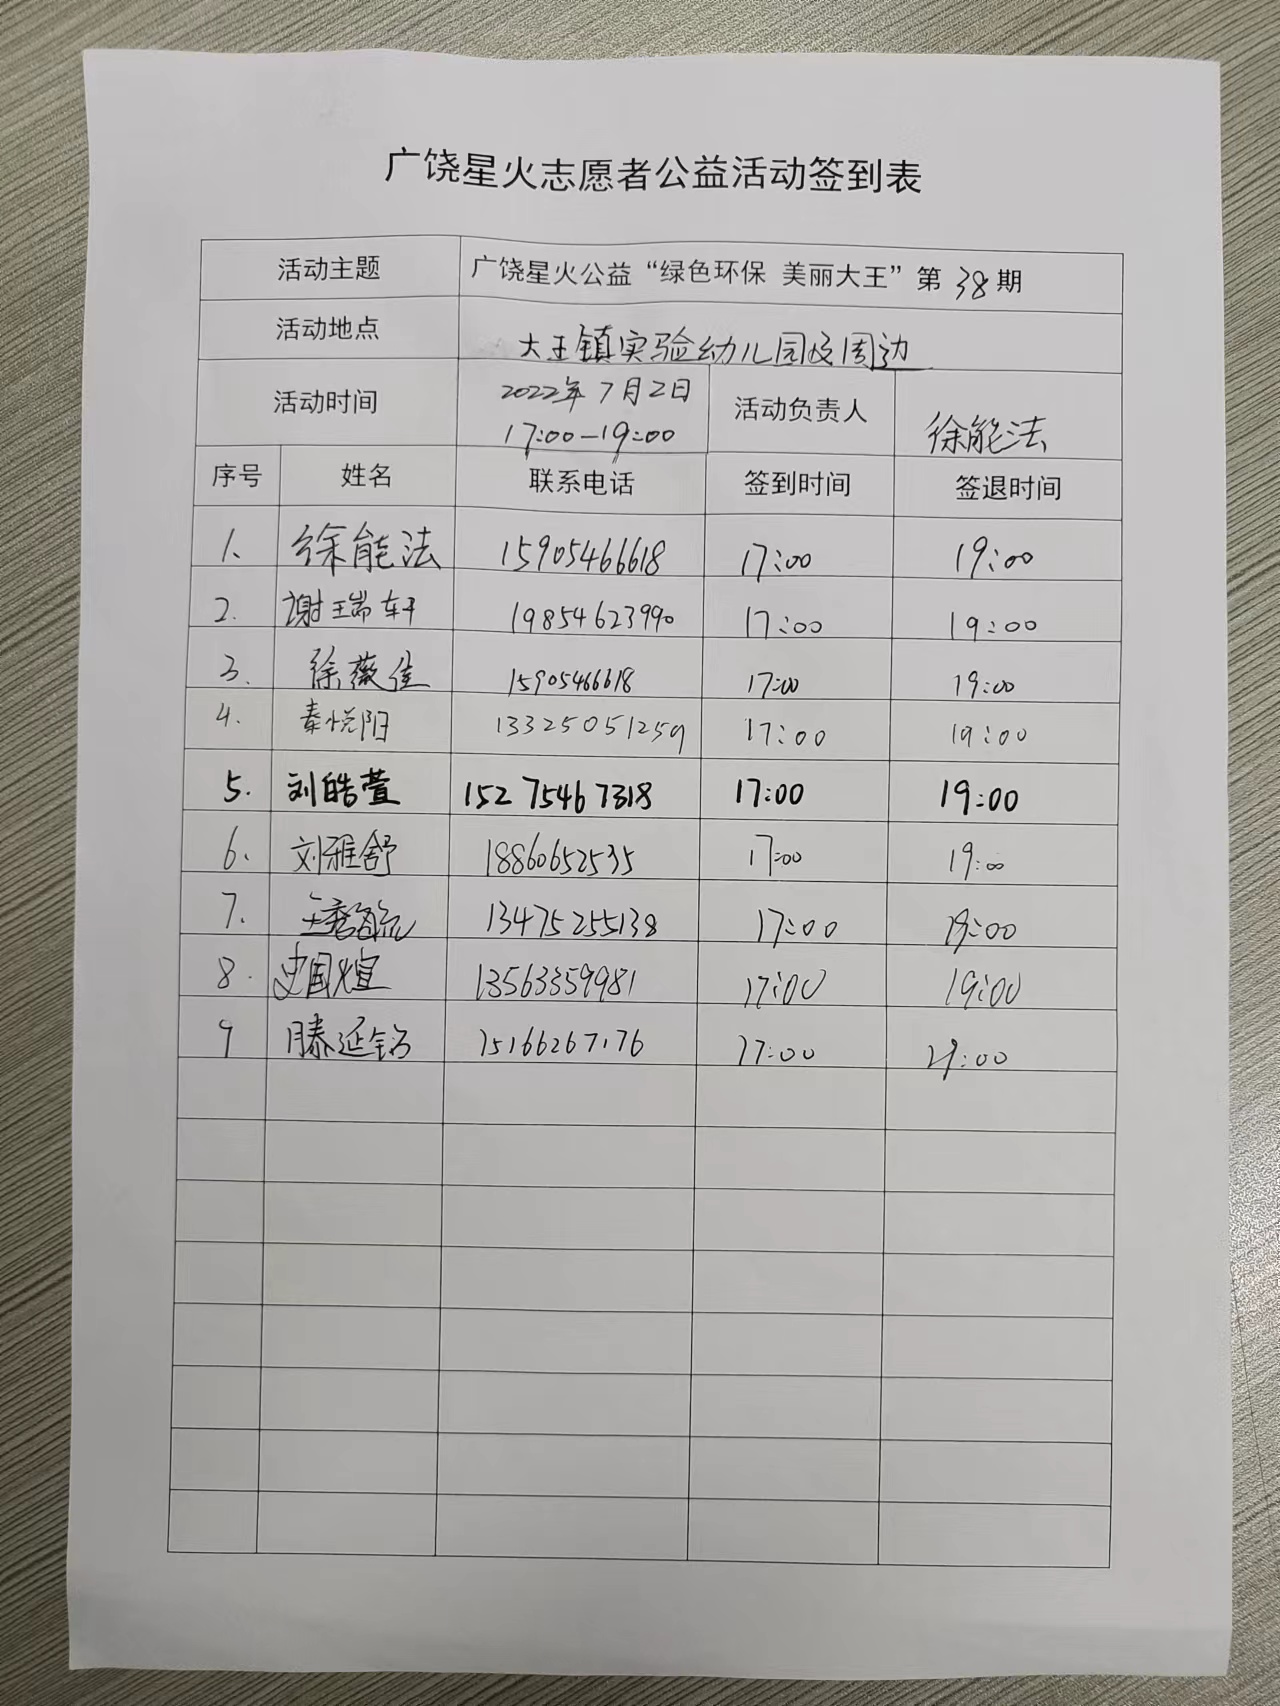 广饶星火志愿者公益活动签到表
活动主题 广饶星火公益“绿色环保 美丽大王”第38期
活动地点 大王镇实验幼儿园及周边
活动时间 2022年7月2日 17:00-19:00 活动负责人 徐能法
序号 姓名 联系电话 签到时间 签退时间
1、 徐能法 15905466618 17:00 19:00
2. 谢瑞轩 19854623990 17:00 19:00
3. 徐薇佳 15905466618 17:00 19:00
4. 秦悦阳 13325051259 17:00 19:00
5. 刘皓萱 15275467318 17:00 19:00
6. 刘雅舒 18860652535 17:00 19:00
7. 13475255138 17:00 19:00
8. 史国煊 13563359981 17:00 19:00
9 滕延 15166267176 17:00 19:00